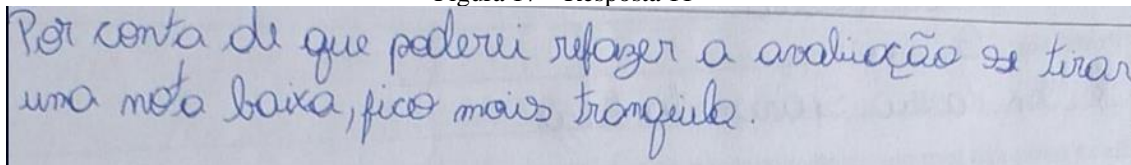 Por conta de que poderei refazer a avaliação se tirar
uma nota baixa, fico mais tranquila.